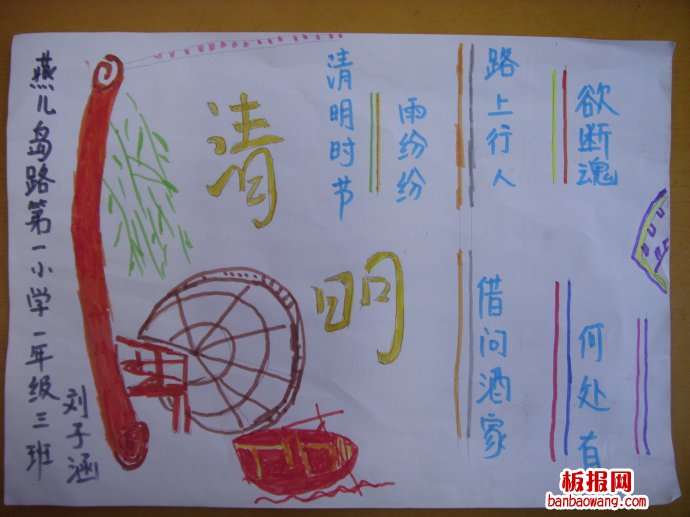 燕儿岛路第一小学一年级三班
刘子涵
清明
清明时节
雨纷纷
路上行人
欲断魂
借问酒家
何处有
板报网
banbaowang.com